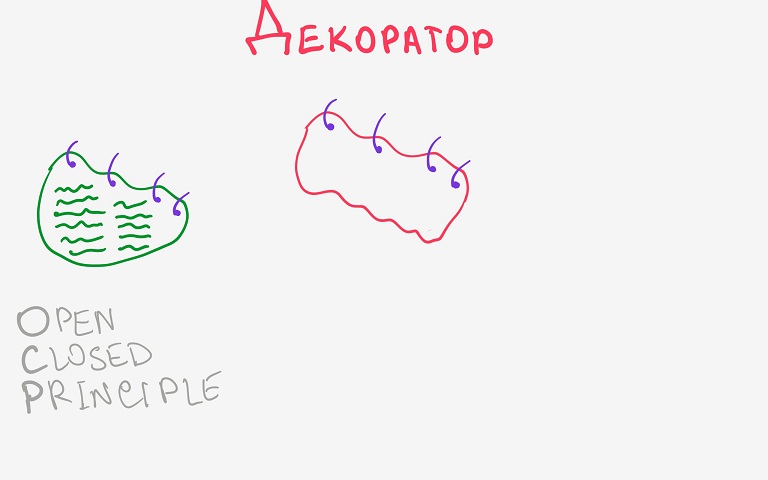 Декоратор
OPEN
CLOSED
PRINCIPLE